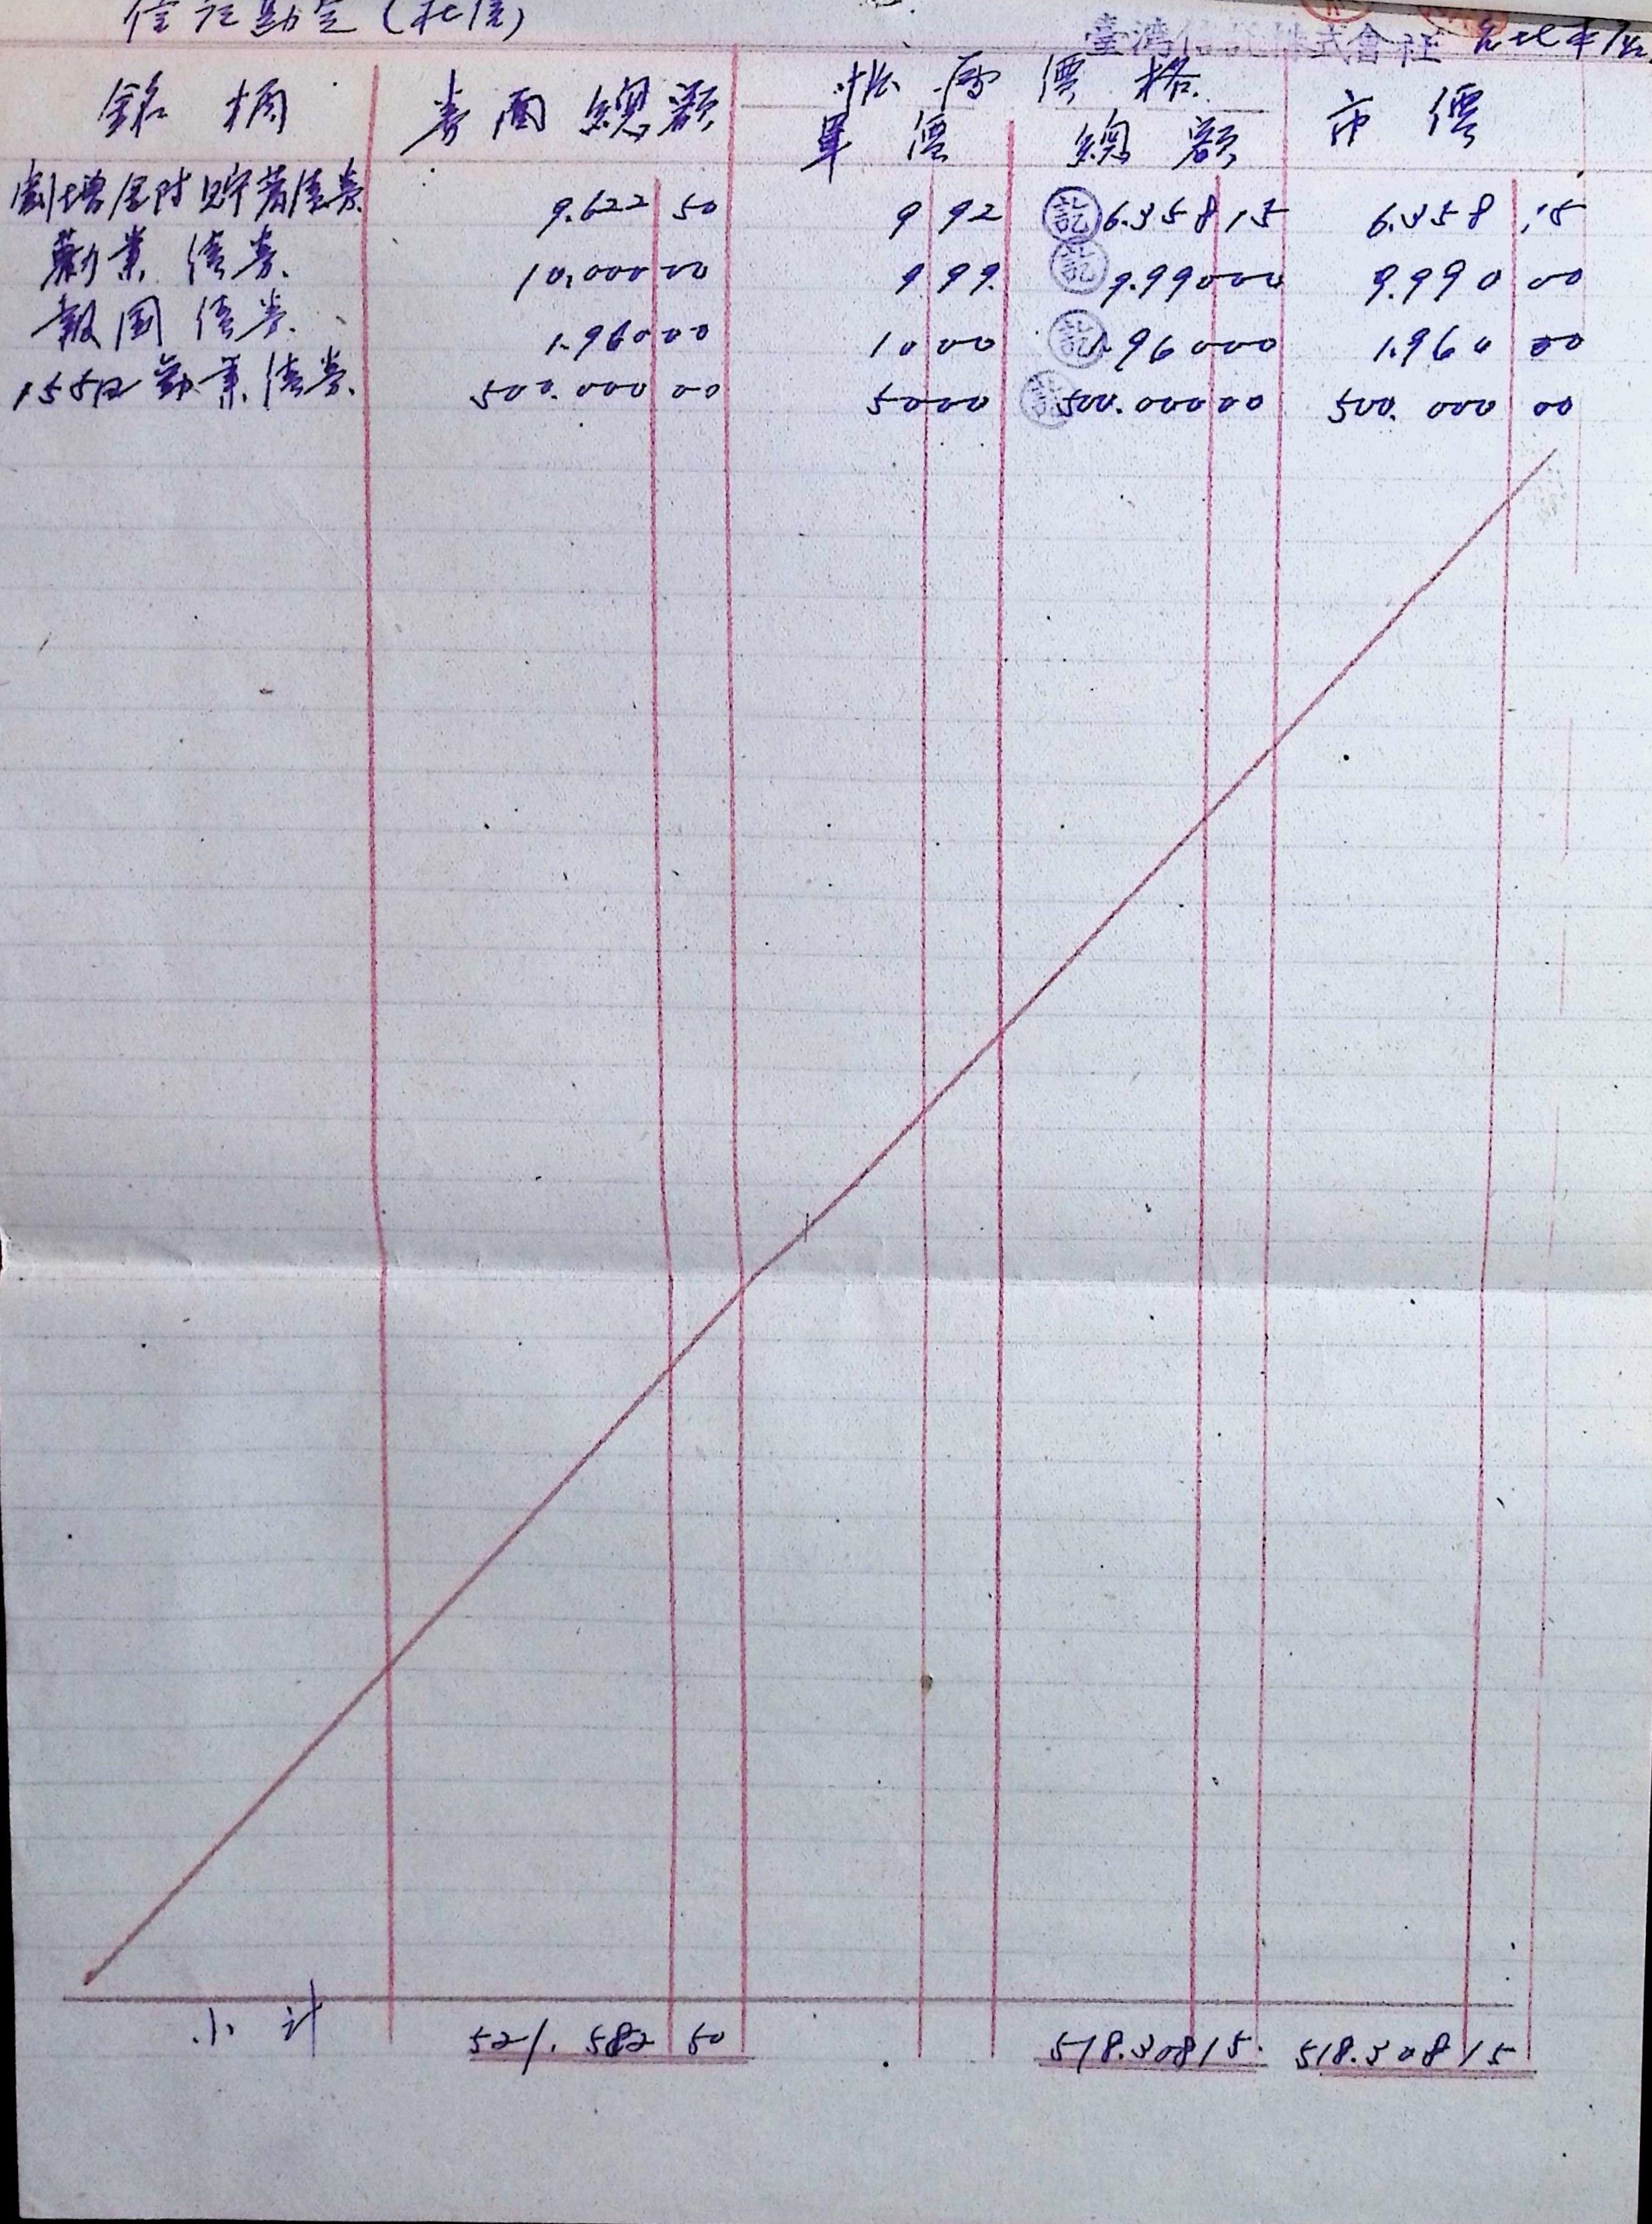 信託勘定（社債）
臺灣信託株式會社 台北本店
銘 柄 券 面 總 額 帳 簿 價 格 市 價
單 價 總 額
割増金附貯蓄債券 9.622 50 9 92 記 6.358 15 6.358 15
勸業債券. 10.000 00 9 99. 記 9.990 00 9.990 00
報国債券. 1.960 00 10 00 記 1.960 00 1.960 00
155回勧業債券. 500.000 00 50 00 記 500.000 00 500.000 00
小 計 521.582 50 518.308 15. 518.308 15